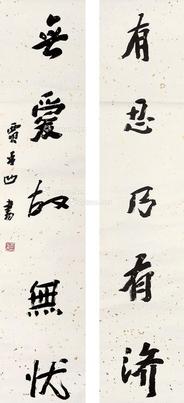 有忍乃有济
無愛故無忧
賈平凹書